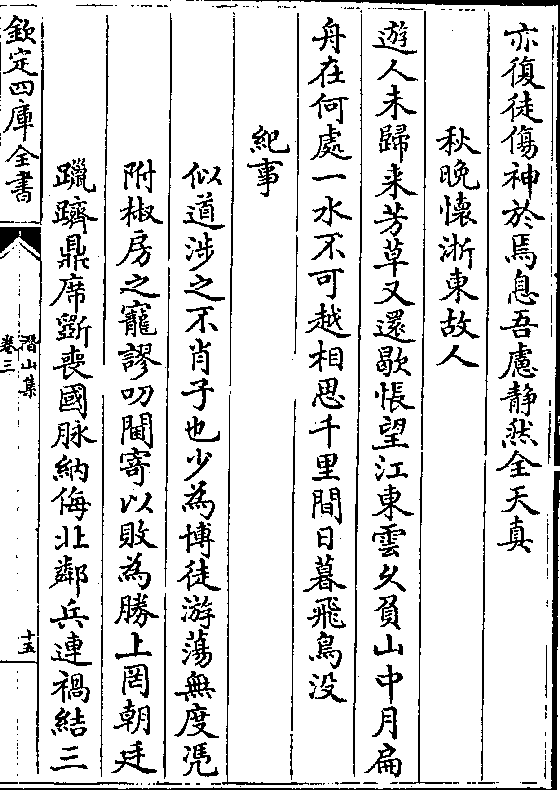 亦復徒傷神於焉息吾慮静然全天真
秋晚懷浙東故人
遊人未歸来芳草又還歇悵望江東雲久負山中月扁
舟在何處一水不可越相思千里間日暮飛鳥没
紀事
似道涉之不肖子也少為博徒游蕩無度凴
附椒房之寵謬叨閫寄以敗為勝上罔朝廷
躐躋鼎席斵喪國脉納侮北鄰兵連禍結三
欽定四庫全書
潛山集
卷三
十五